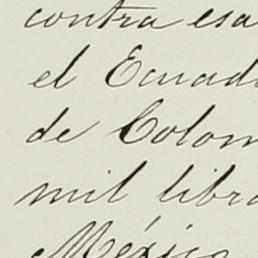 contra esa
el Ecuado
de Colom
mil libra
México